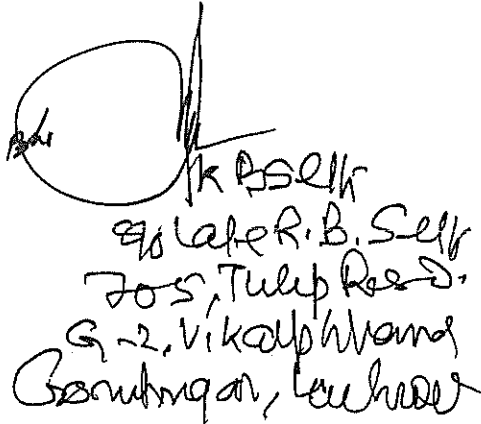 K B Selk
S/o Late R. B. Selk
705, Tulip Resd.
G-2, Vikalpkhand
Gomtingar, Lucknow